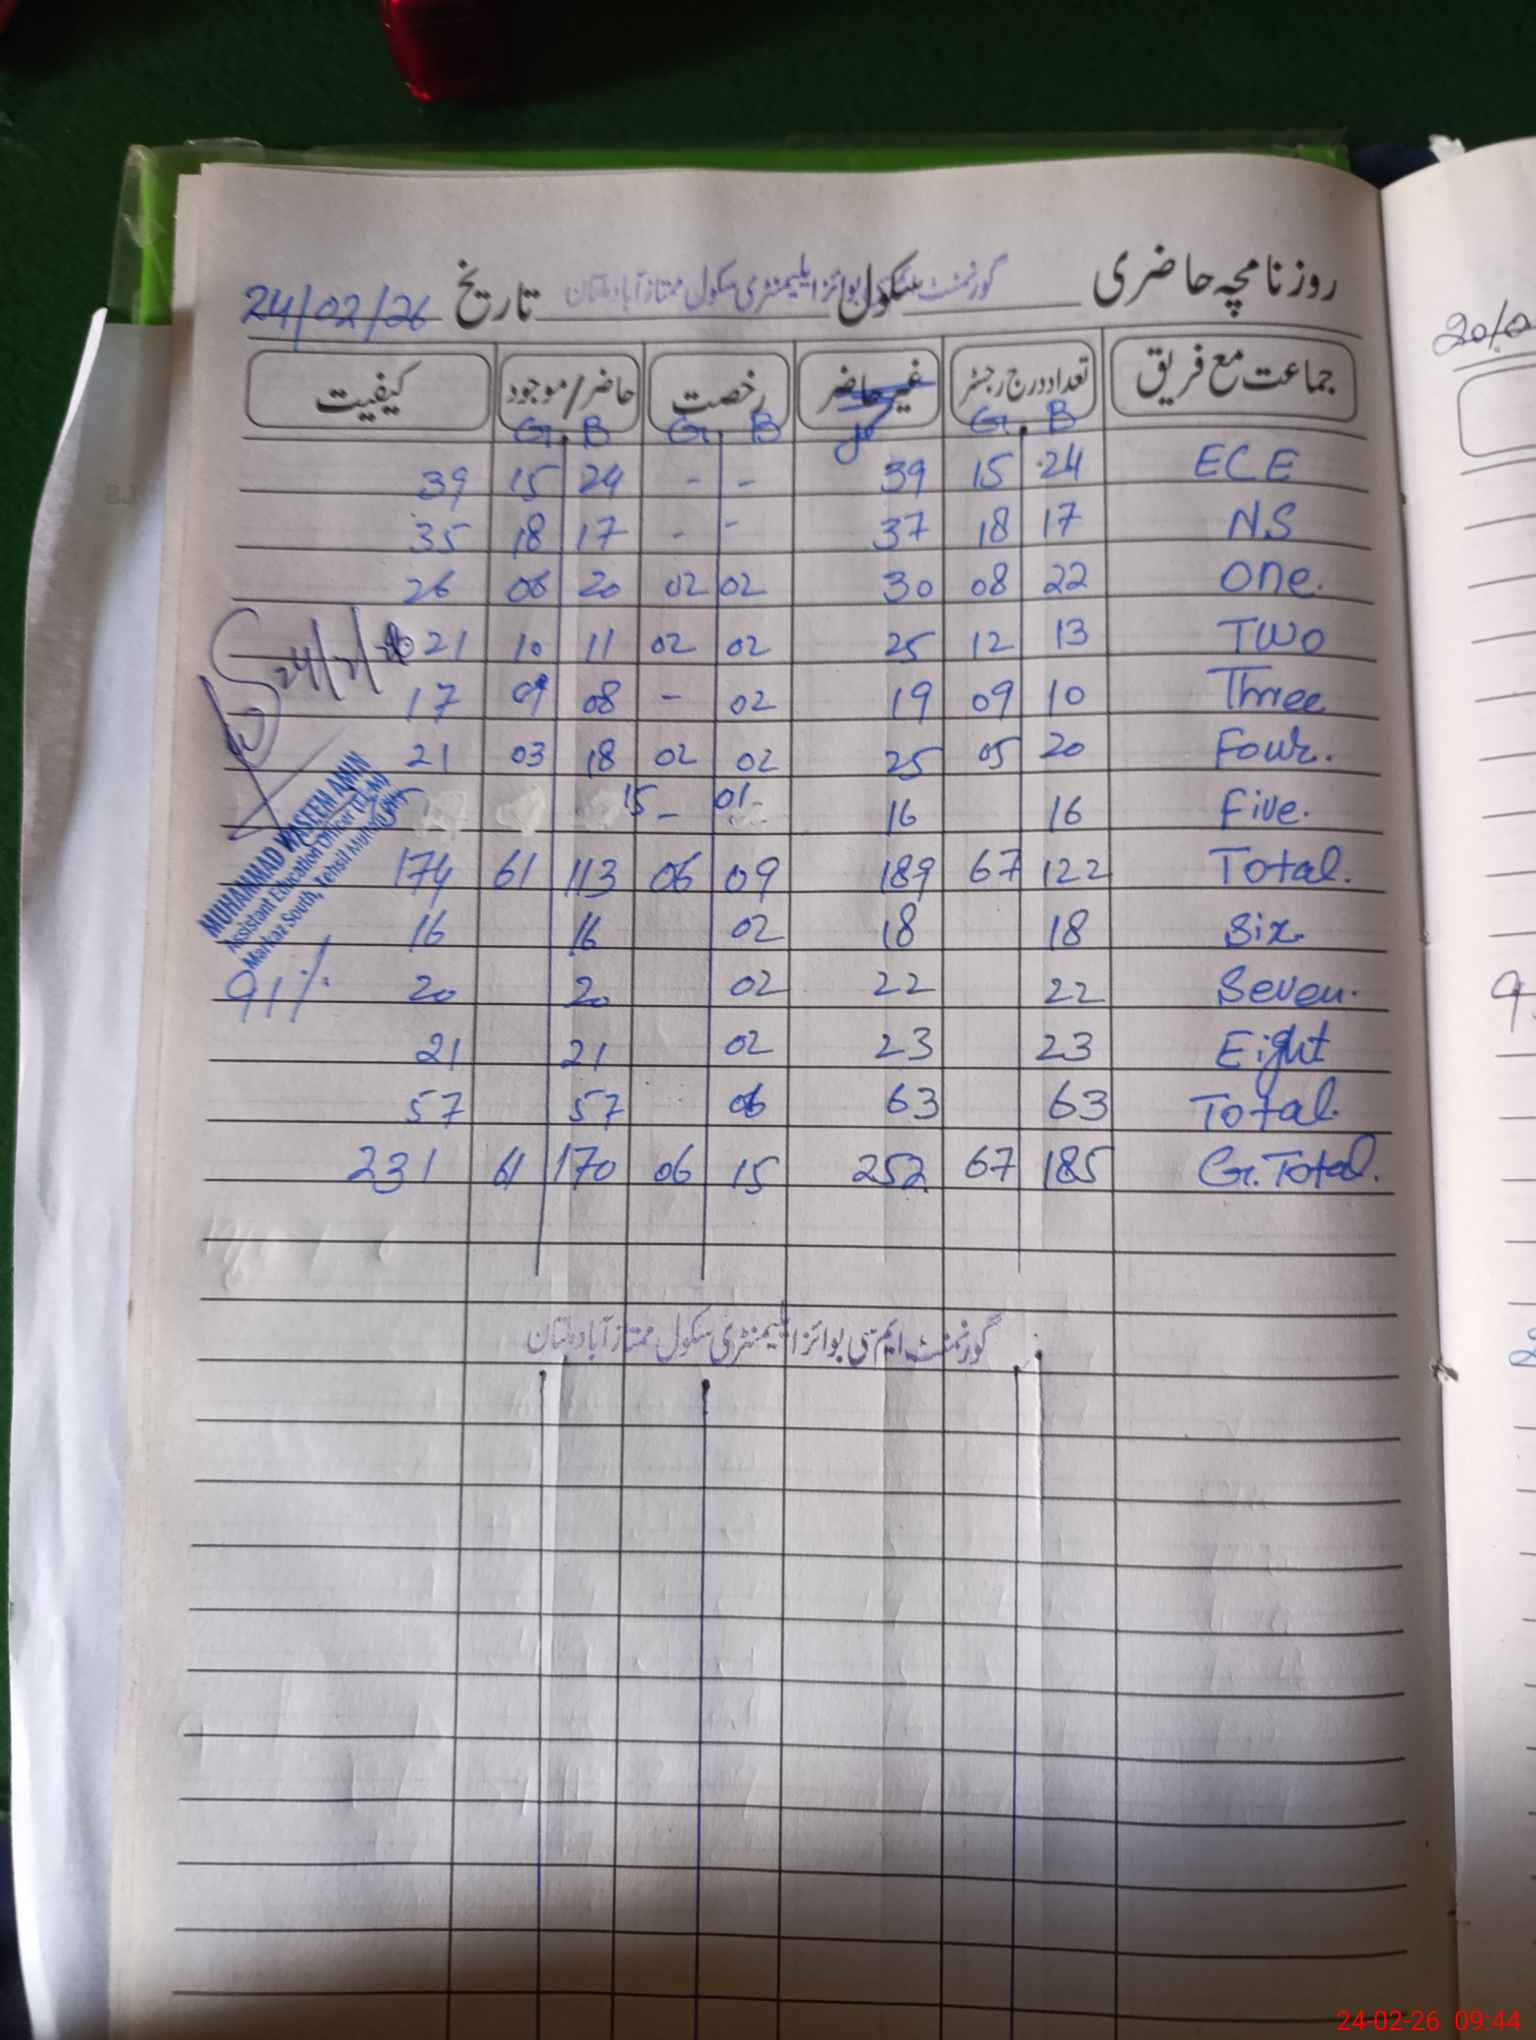 روزنامچہ حاضری گورنمنٹ سکول بوائز ایلیمنٹری سکول ممتاز آباد ملتان تاریخ 24/02/26
جماعت مع فریق تعداد درج رجسٹر غیر حاضر رخصت حاضر/موجود کیفیت
B G B G B G
ECE 24 15 39 - - 24 15 39
NS 17 18 37 - - 17 18 35
One. 22 08 30 02 02 20 06 26
Two 13 12 25 02 02 11 10 21
Three 10 09 19 02 - 08 09 17
Four. 20 05 25 02 02 18 03 21
Five. 16 16 01 - 15 15
Total. 122 67 189 09 06 113 61 174
Six. 18 18 02 16 16
Seven. 22 22 02 20 20
Eight 23 23 02 21 21
Total. 63 63 06 57 57
Gr. Total. 185 67 252 15 06 170 61 231
24/2/26
MUHAMMAD WASEEM AMIN
Assistant Education Officer
Markaz South, Tehsil
91%
گورنمنٹ ایم سی بوائز ایلیمنٹری سکول ممتاز آباد ملتان
24-02-26 09:44